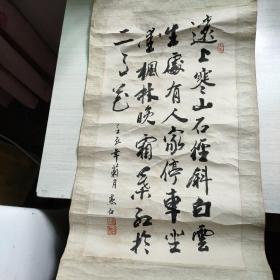 遠上寒山石徑斜白雲
生處有人家停車坐
愛楓林晚霜葉紅於
二月花